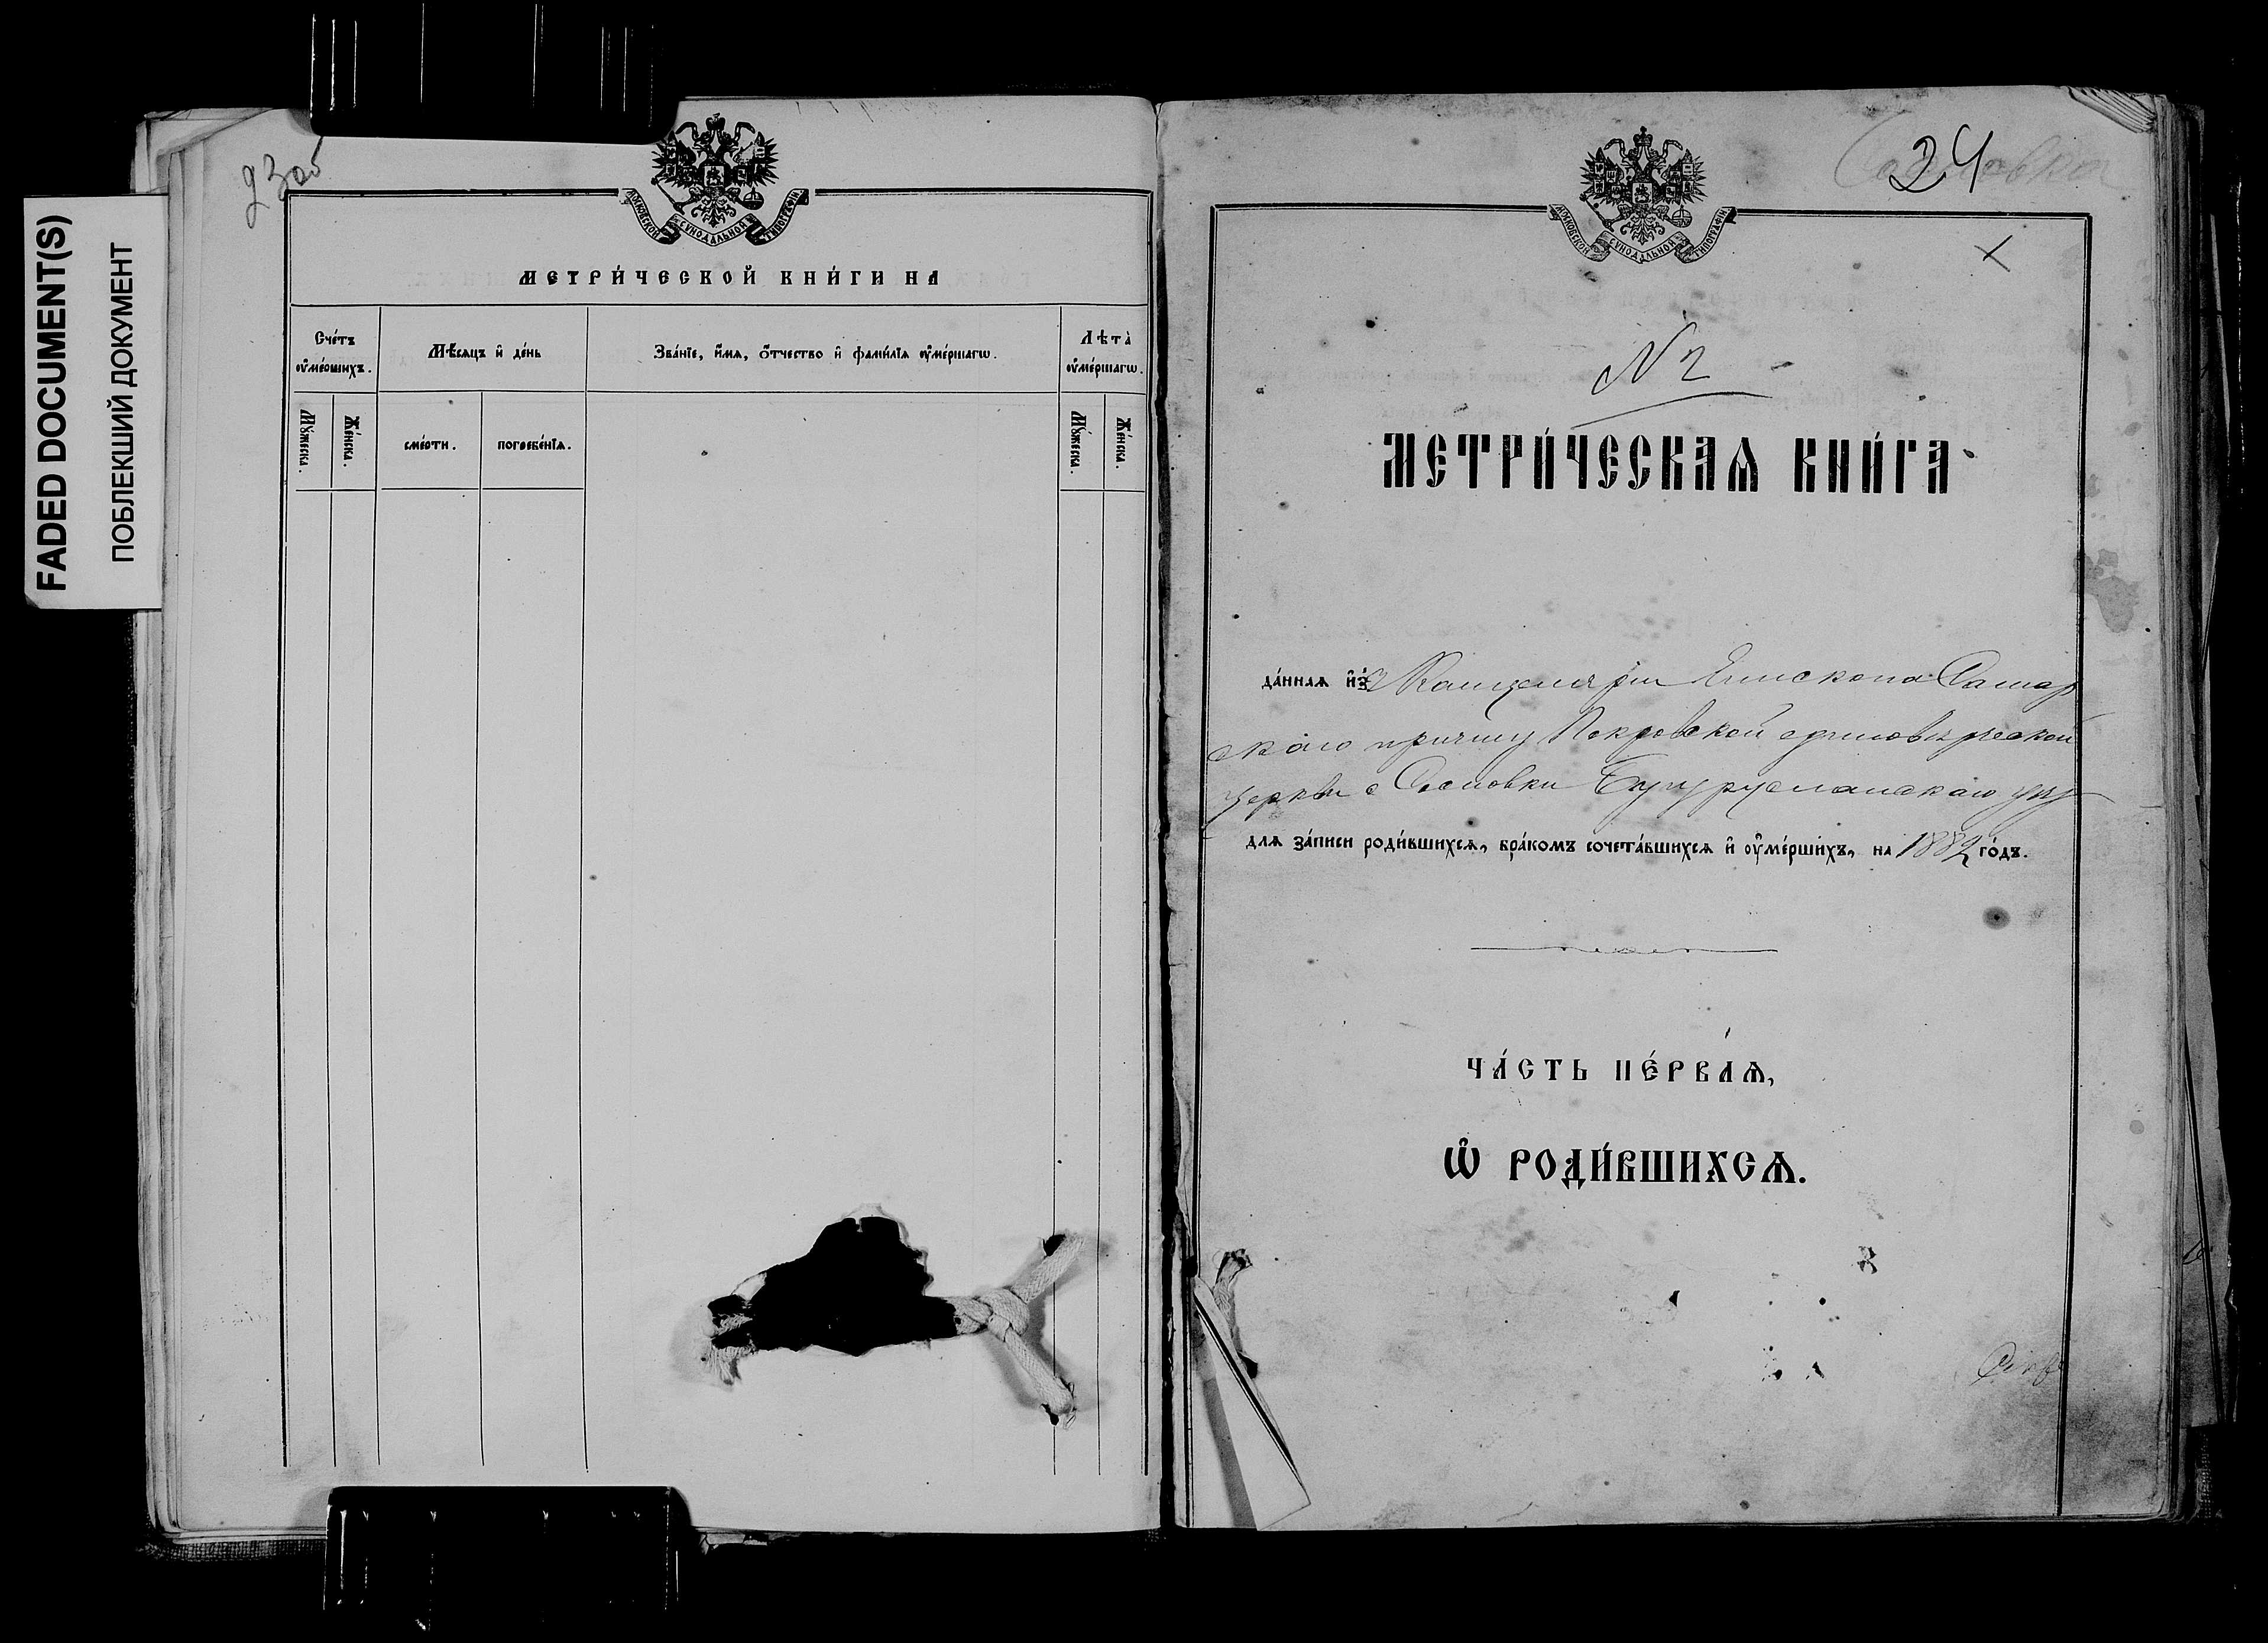 FADED DOCUMENT(S)
ПОБЛЕКШИЙ ДОКУМЕНТ
23об
МОСКОВСКОЙ СѴНОДАЛЬНОЙ ТИПОГРАФІИ
МЕТРИ́ЧЕСКОЙ КНИ́ГИ НА
Сче́тъ ᲂу҆ме́ршихъ.
Мѣ́сяцъ и҆ де́нь
Зва́нїе, и҆́мѧ, ѻ҆́тчество и҆ фами́лїѧ ᲂу҆ме́ршагѡ.
Лѣ́та ᲂу҆ме́ршагѡ.
Мꙋ́жеска.
Же́нска.
сме́рти.
погребе́нїѧ.
Мꙋ́жеска.
Же́нска.
Сосновка
24
МОСКОВСКОЙ СѴНОДАЛЬНОЙ ТИПОГРАФІИ
N 2
МЕТРИ́ЧЕСКАѦ КНИ́ГА
да́ннаѧ и҆з̾ Канцеляріи Епископа Самар
скаго причту Покровской единовѣрческой
церкви с Сосновки Бугурусланскаго уѣз
длѧ за́писи роди́вшихсѧ, бра́комъ сочета́вшихсѧ и҆ ᲂу҆ме́ршихъ, на 1882 го́дъ.
ЧА́СТЬ ПЕ́РВАѦ,
Ѡ҆ РОДИ́ВШИХСѦ.